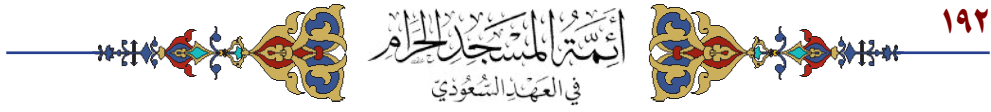 ١٩٢
أَئِمَّةُ المَسْجِدِ الحَرَامِ
فِي العَهْدِ السُّعُودِيّ